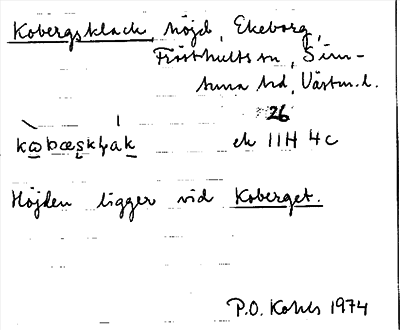 Kobergsklack, höjd, Ekeborg,
Frösthults sn, Sim-
tuna hd, Västm. l.
26
ek 11H 4c
Höjden ligger vid Koberget.
P.O. Kohls 1974